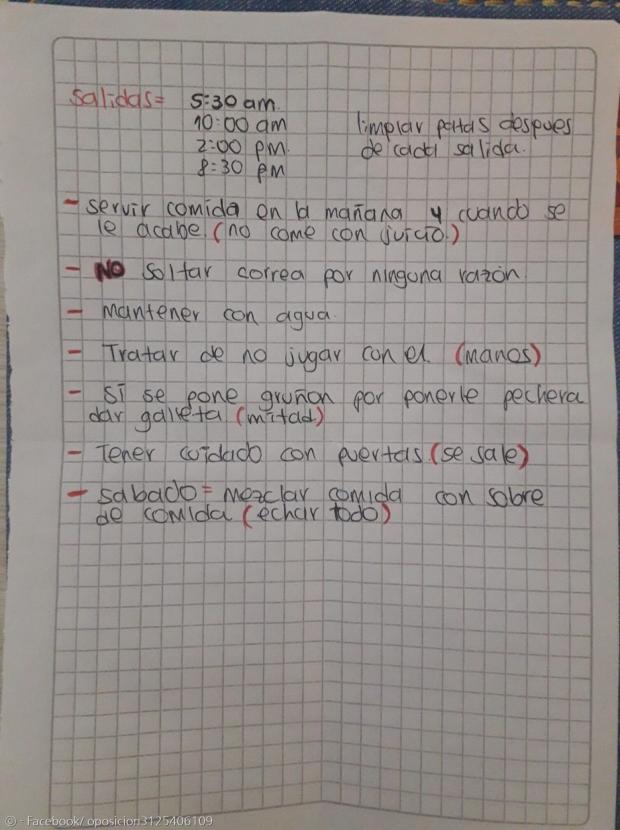 salidas= 5:30 am.
10:00 am
2:00 pm.
8:30 pm
limpiar patas despues
de cada salida.
- servir comida en la mañana y cuando se
le acabe. (no come con juicio.)
- NO soltar correa por ninguna razón
- Mantener con agua.
- Tratar de no jugar con el. (manos)
- Si se pone gruñon por ponerle pechera
dar galleta (mitad)
- Tener cuidado con puertas (se sale)
- sabado = mezclar comida con sobre
de comida (echar todo)
© - Facebook/ oposicion3125406109